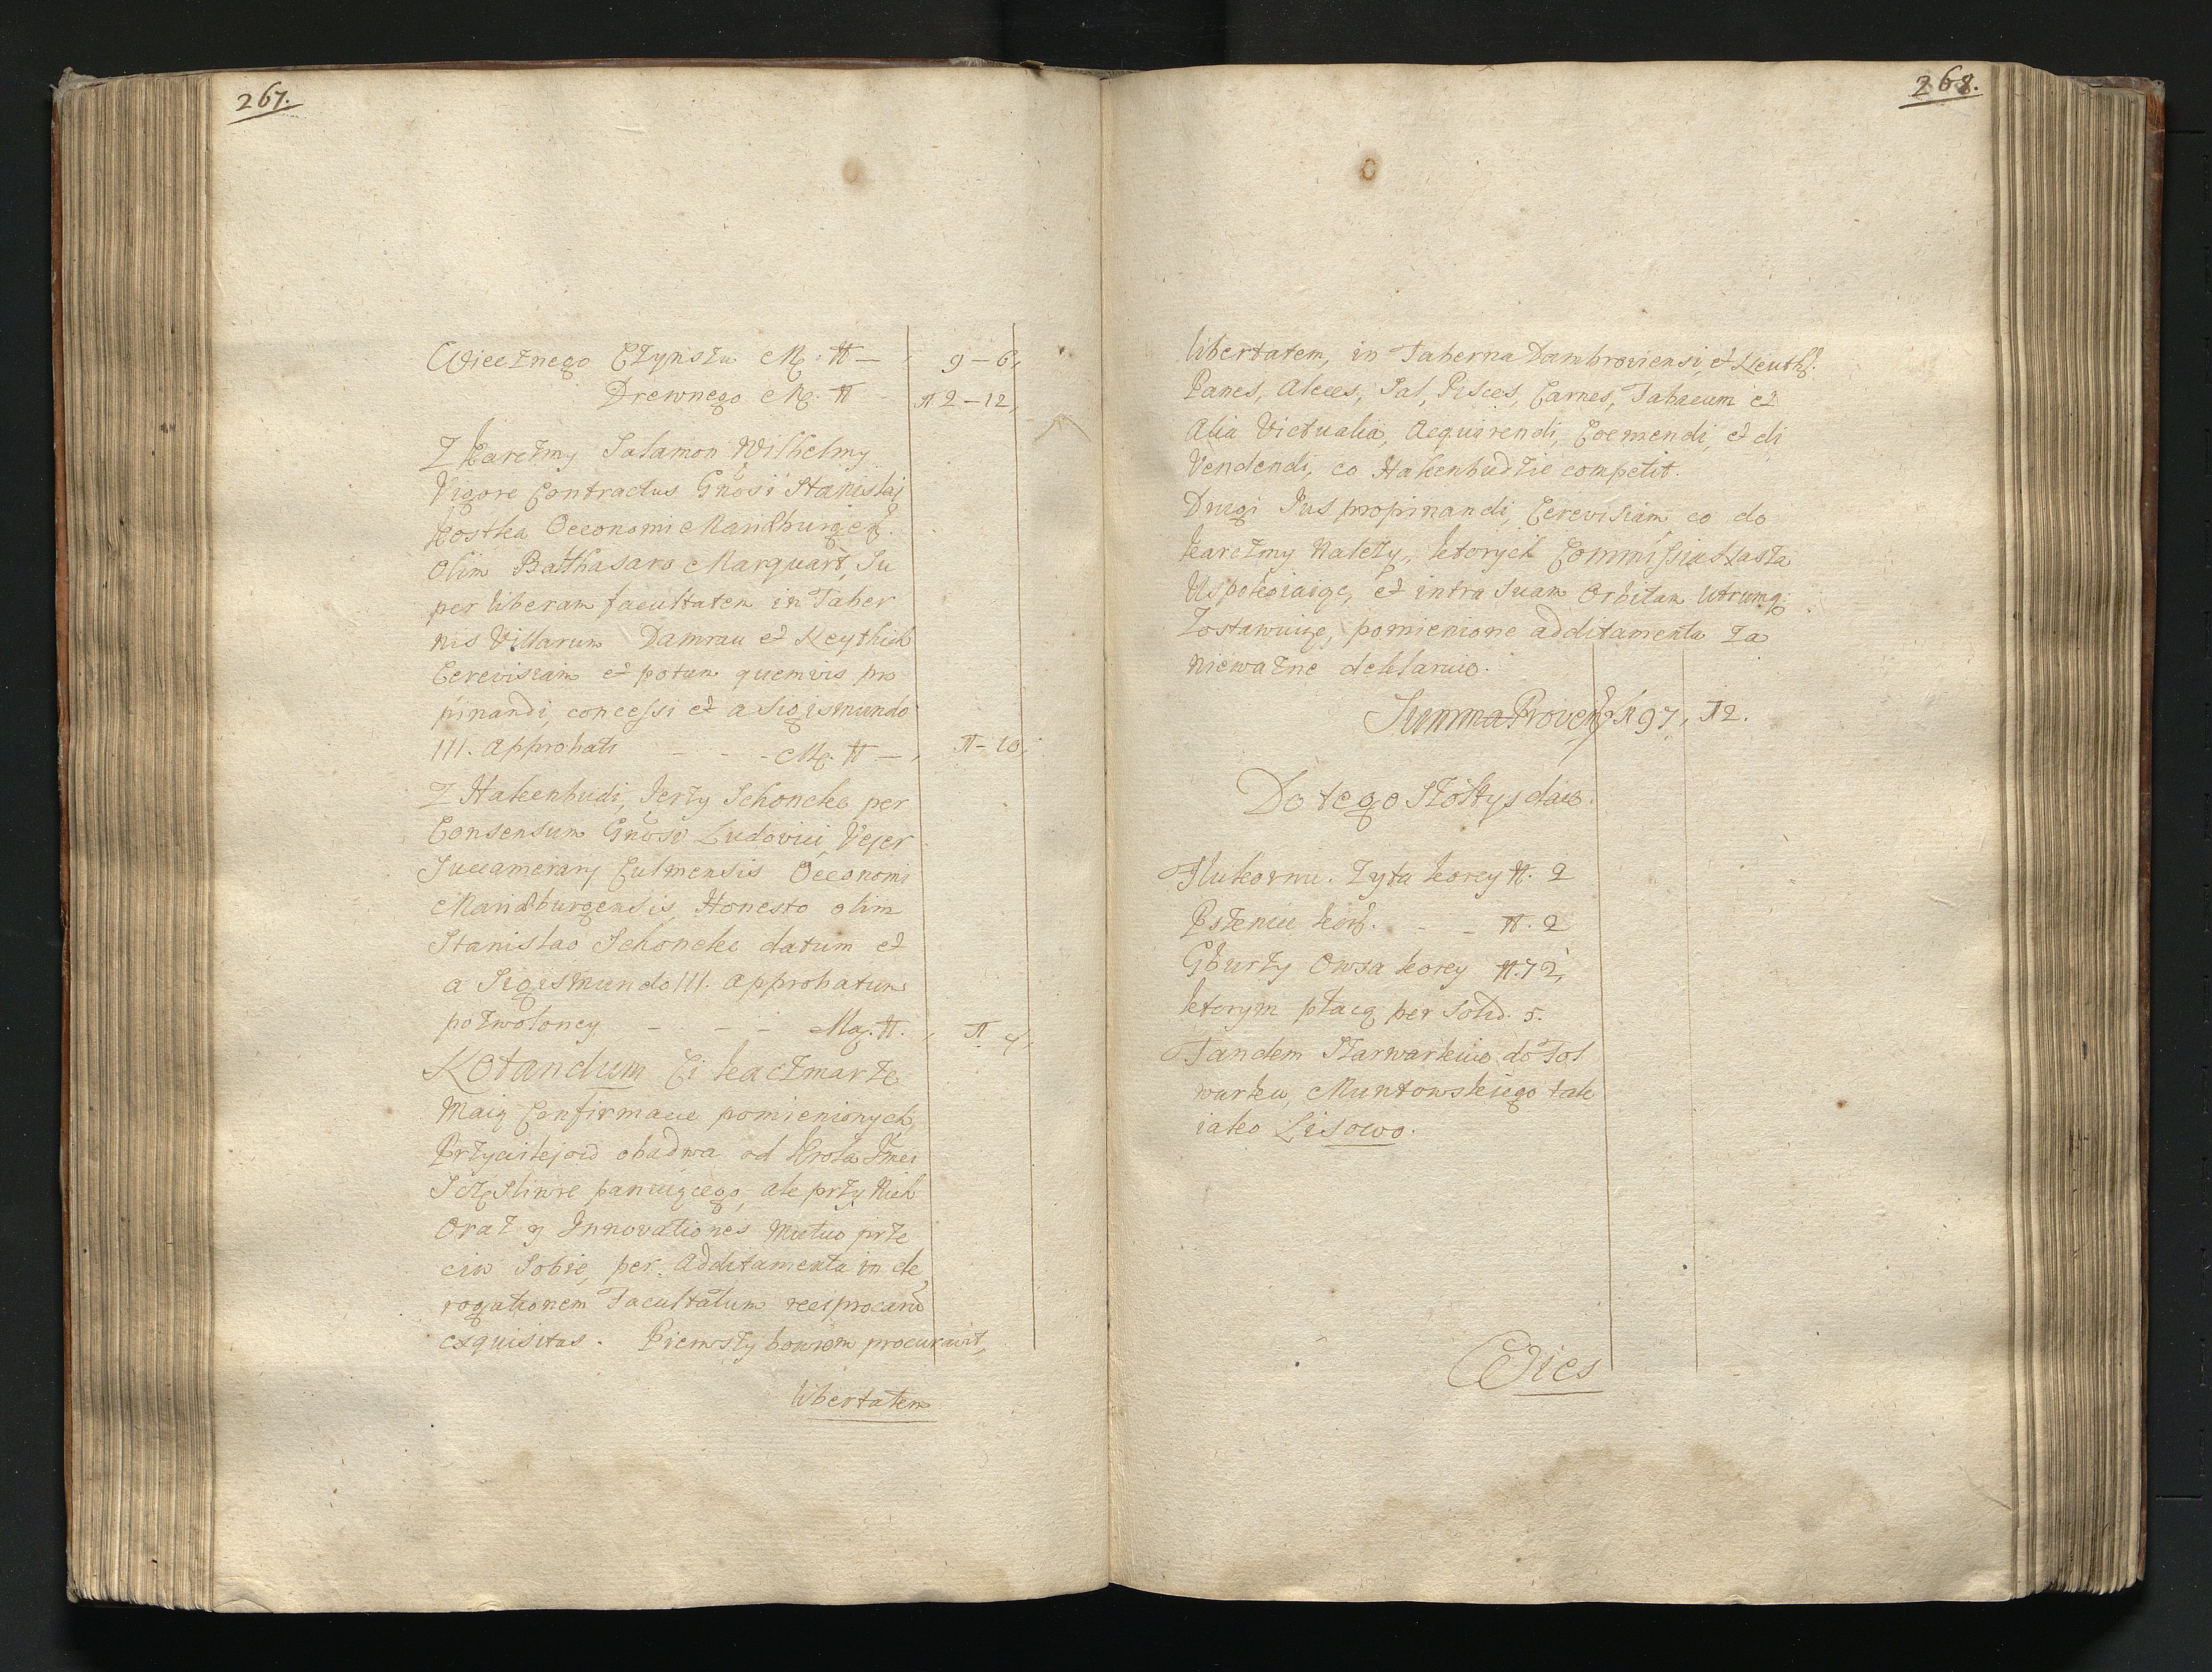 267.
Wiecznego Czynszu M: N — 9 – 6,
Drewnego M. N – N 2 – 12,
Z Karczmy Salamon Wilhelmy
Vigore Contractus Gnosi Stanislaj
Kostka Oeconomi Mariæburgen.
Olim Balthasaro Marquart, Su
per liberam facultatem in Taber
nis Villarum Damrau et Keythich
Cerevisiam et potum quemvis pro
pinandi, concessi et a Sigismundo
III. Approbati – – – M. N – , N – 10,
Z Hakenbudi, Jerzy Schoncke per
Consensum Gnosi Ludovici, Vejer
Succamerarij Culmensis Oeconomi
Mariæburgensis, Honesto olim
Stanislao Schoncke datum et
a Sigismundo III. Approbatum
pozwoloney – – – Mar. N. , N 4,
Notandum Ci Kaczmarze
Maią Confirmacie pomienionych
obadwa od Krola Jmci
Sczęsliwie panuiącego, ale przy Nich
Oraz y Innovationes Mutuo prze
ciw Sobie, per Additamenta in de
rogationem Facultatum reciprocarũ
exquisitas. Pierwszy bowiem procuravit,
libertatem
268.
libertatem, in Taberna Dambroviensi, et
Panes, Aleces, Sal, Pisces, Carnes, Tabacum et
Alia Victualia, Acquirendi, Coemendi, et di
Vendendi, co Hakenbudzie competit.
Drugi Jus propinandi, Cerevisiam co do
karczmy Nalezy, ktorych Commissia Nasza
Uspokoiaiąc, et intra Suam Orbitam Utrumq
Zostawuiąc, pomienione additamenta za
niewazne deklaruie.
Summa Proven. N 97, N 2.
Do tego Szołtys daie.
Tlukornu. Zyta korcy N. 2
Pszenicę kor. – – N. 2
Gburzy Owsa korcy N. 72,
ktorym płacą per Solid. 5.
Tandem Szarwarkuio do Fol
warku, Muntowskiego tak
iako Lisowo.
Wies